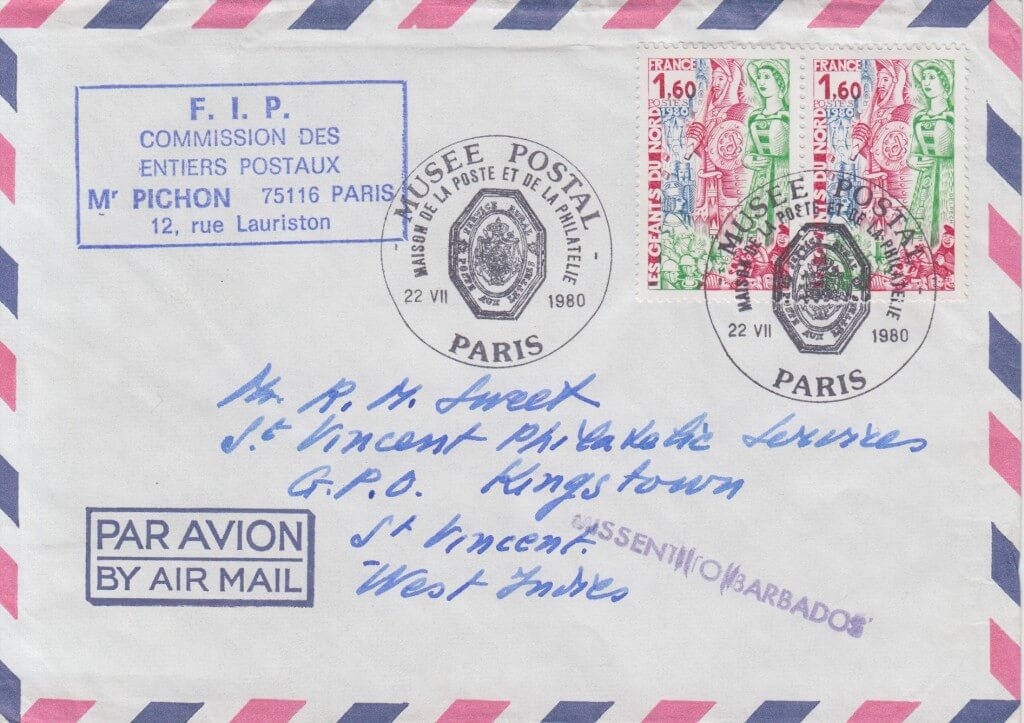 F. I. P.
COMMISSION DES
ENTIERS POSTAUX
Mr PICHON 75116 PARIS
12, rue Lauriston
FRANCE
1,60
POSTES
1980
LES GEANTS DU NORD
FRANCE
1,60
POSTES
1980
GEANTS DU NORD
MUSEE POSTAL
MAISON DE LA POSTE ET DE LA PHILATELIE
SERVICE RURAL
POUR AUX LETTRES
22 VII 1980
PARIS
MUSEE POSTAL
MAISON DE LA POSTE ET DE LA PHILATELIE
22 VII 1980
PARIS
Mr. R. M. Sweet
St Vincent Philatelic Services
G.P.O. Kingstown
St Vincent.
West Indies
PAR AVION
BY AIR MAIL
MISSENT TO BARBADOS